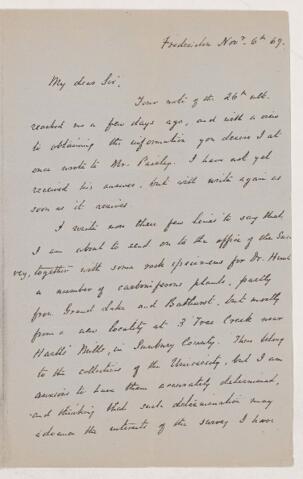 Fredericton Novr. 6th 69.
My dear Sir.
Your note of the 26th ult.
reached me a few days ago, and with a view
to obtaining the information you desire I at
once wrote to Mr. Paisley. I have not yet
received his answer, but will write again as
soon as it arrives.
I write now these few lines to say that
I am about to send on to the office of the Sur-
vey, together with some rock specimens for Dr. Hunt
a number of carboniferous plants, partly
from Grand Lake and Bathurst, but mostly
from a new locality at 3 Tree Creek near
Hartts Mills, in Sunbury County. These belong
to the collections of the University, but I am
anxious to have them accurately determined,
and thinking that such determination may
advance the interests of the survey I have